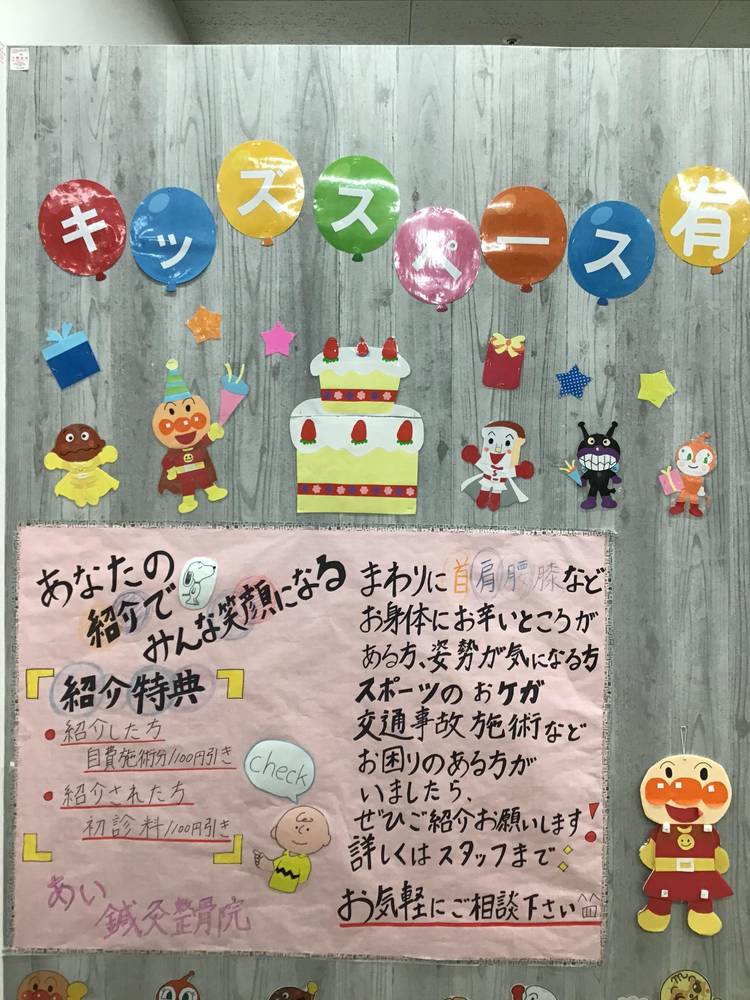 キッズスペース有
あなたの
紹介で
みんな笑顔になる
紹介特典
紹介した方
自費施術分1100円引き
紹介された方
初診料1100円引き
check
あい
鍼灸整骨院
まわりに首肩腰膝など
お身体にお辛いところが
ある方、姿勢が気になる方
スポーツのおケガ
交通事故施術など
お困りのある方が
いましたら、
ぜひご紹介お願いします!
詳しくはスタッフまで
お気軽にご相談下さい